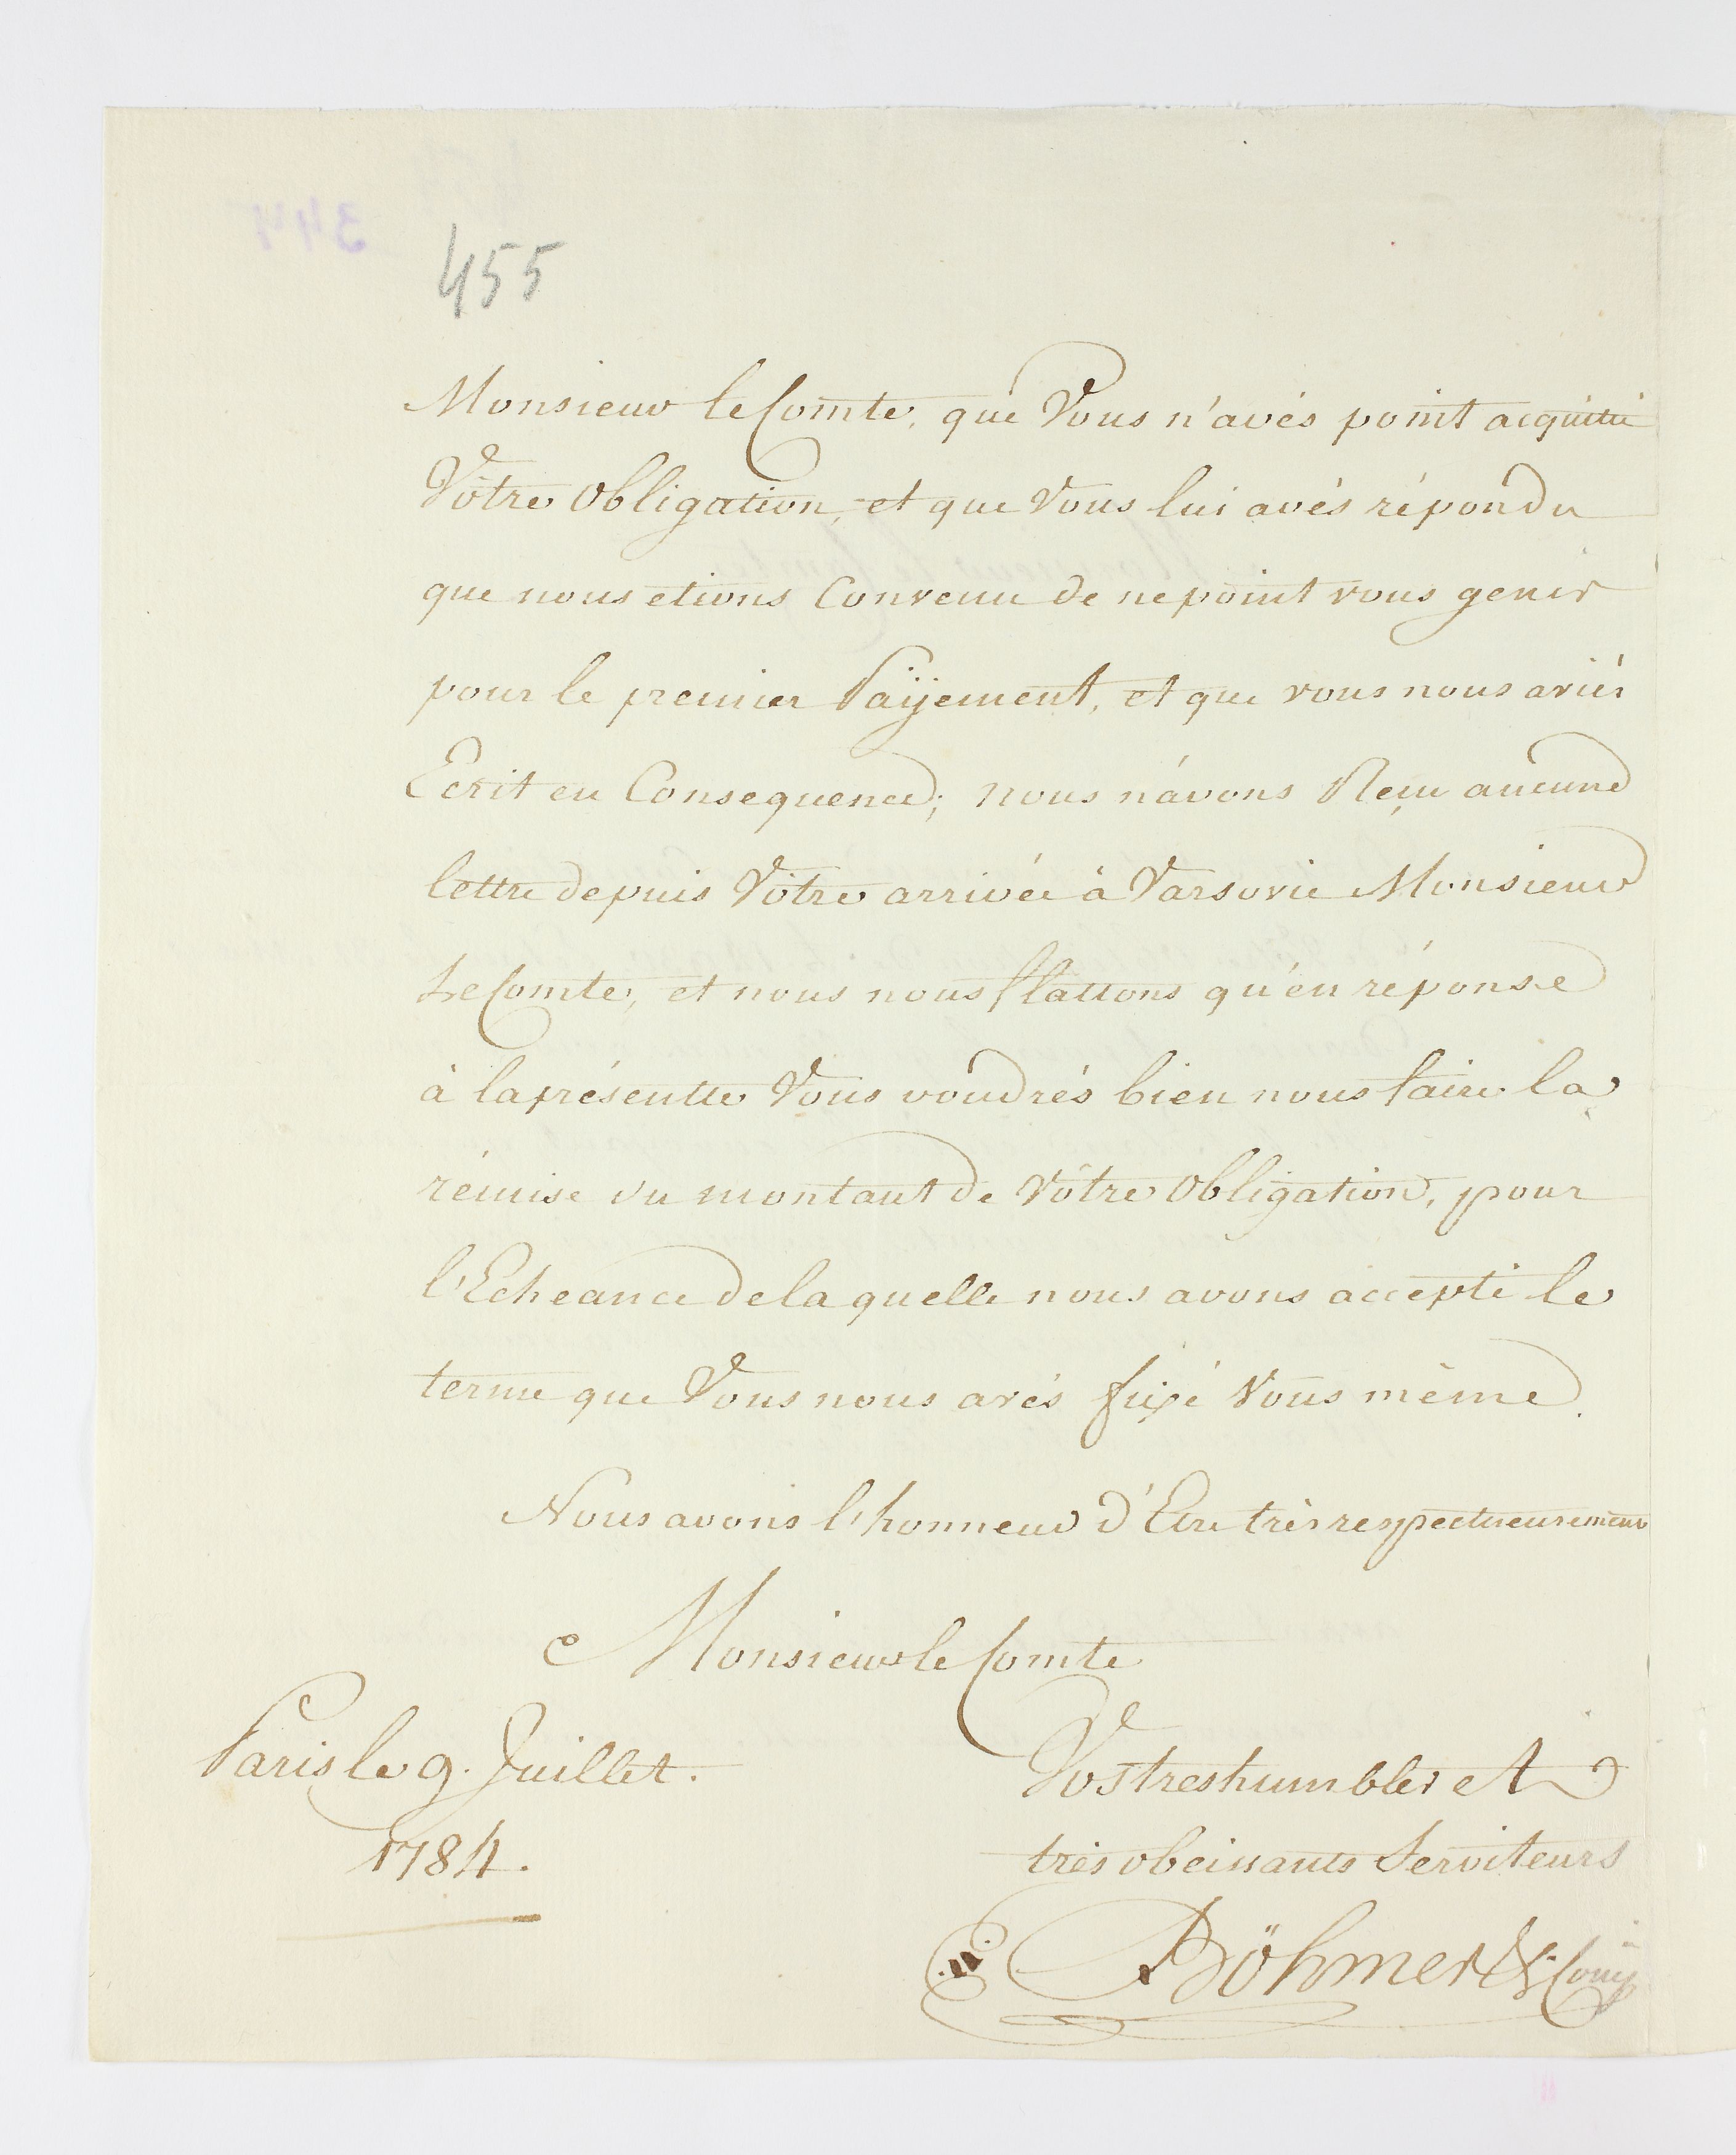 455
Monsieur le Comte, que Vous n'avés point acquitté
Vôtre Obligation, et que Vous lui avés répondu
que nous etions Convenu de ne point vous gener
pour le premier Payement, et que vous nous aviés
Ecrit en Consequence; nous n'avons Reçu aucune
lettre depuis Vôtre arrivée à Varsovie Monsieur
Le Comte, et nous nous flattons qu'en réponse
à la présentte Vous voudrés bien nous faire la
rémise du montant de Vôtre Obligation, pour
l'Echeance de laquelle nous avons accepté le
terme que Vous nous avés fixé Vous même.
Nous avons l'honneur d'Etre très respectueusement
Monsieur le Comte
Paris le 9. Juillet.
1784.
Vos tres humbles et
très obeissants Serviteurs
Böhmer & Comp